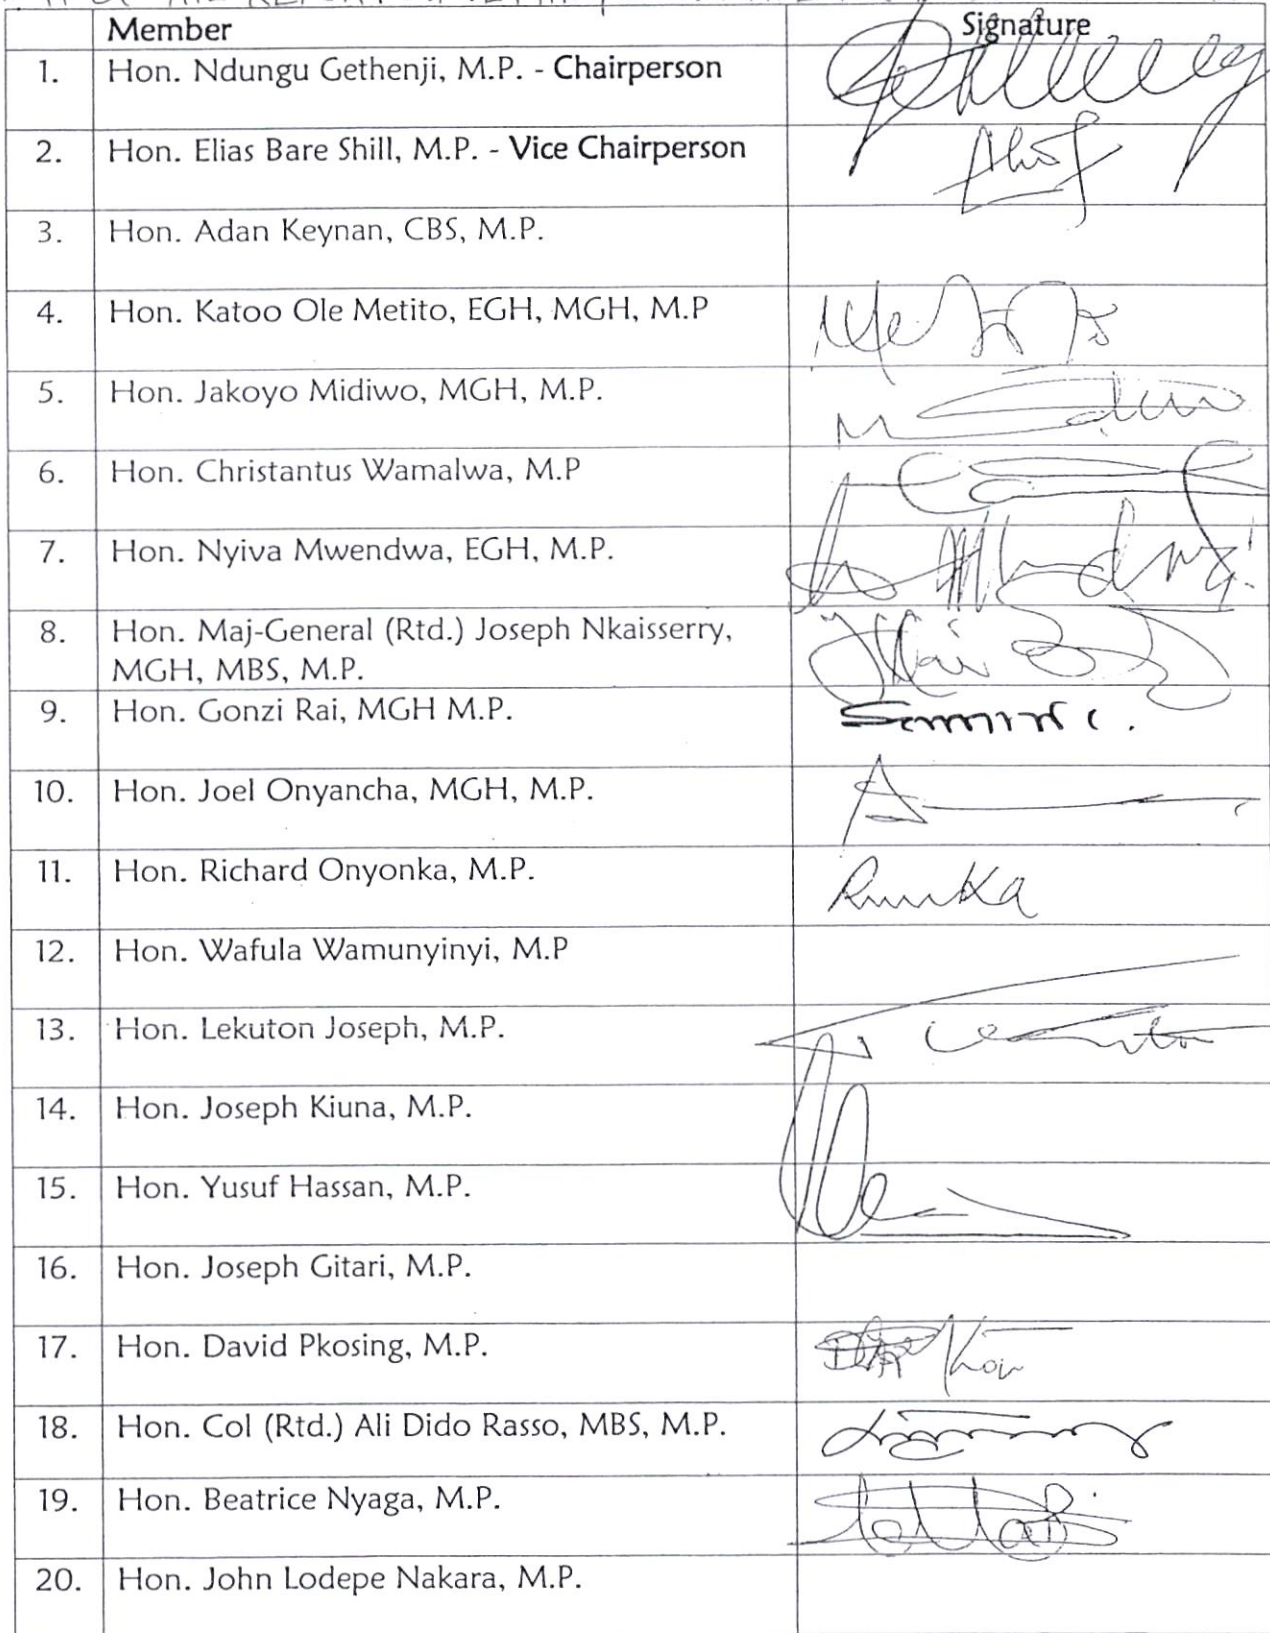 Member Signature
1. Hon. Ndungu Gethenji, M.P. - Chairperson
2. Hon. Elias Bare Shill, M.P. - Vice Chairperson
3. Hon. Adan Keynan, CBS, M.P.
4. Hon. Katoo Ole Metito, EGH, MGH, M.P
5. Hon. Jakoyo Midiwo, MGH, M.P.
6. Hon. Christantus Wamalwa, M.P
7. Hon. Nyiva Mwendwa, EGH, M.P.
8. Hon. Maj-General (Rtd.) Joseph Nkaisserry,
MGH, MBS, M.P.
9. Hon. Gonzi Rai, MGH M.P.
10. Hon. Joel Onyancha, MGH, M.P.
11. Hon. Richard Onyonka, M.P.
12. Hon. Wafula Wamunyinyi, M.P
13. Hon. Lekuton Joseph, M.P.
14. Hon. Joseph Kiuna, M.P.
15. Hon. Yusuf Hassan, M.P.
16. Hon. Joseph Gitari, M.P.
17. Hon. David Pkosing, M.P.
18. Hon. Col (Rtd.) Ali Dido Rasso, MBS, M.P.
19. Hon. Beatrice Nyaga, M.P.
20. Hon. John Lodepe Nakara, M.P.